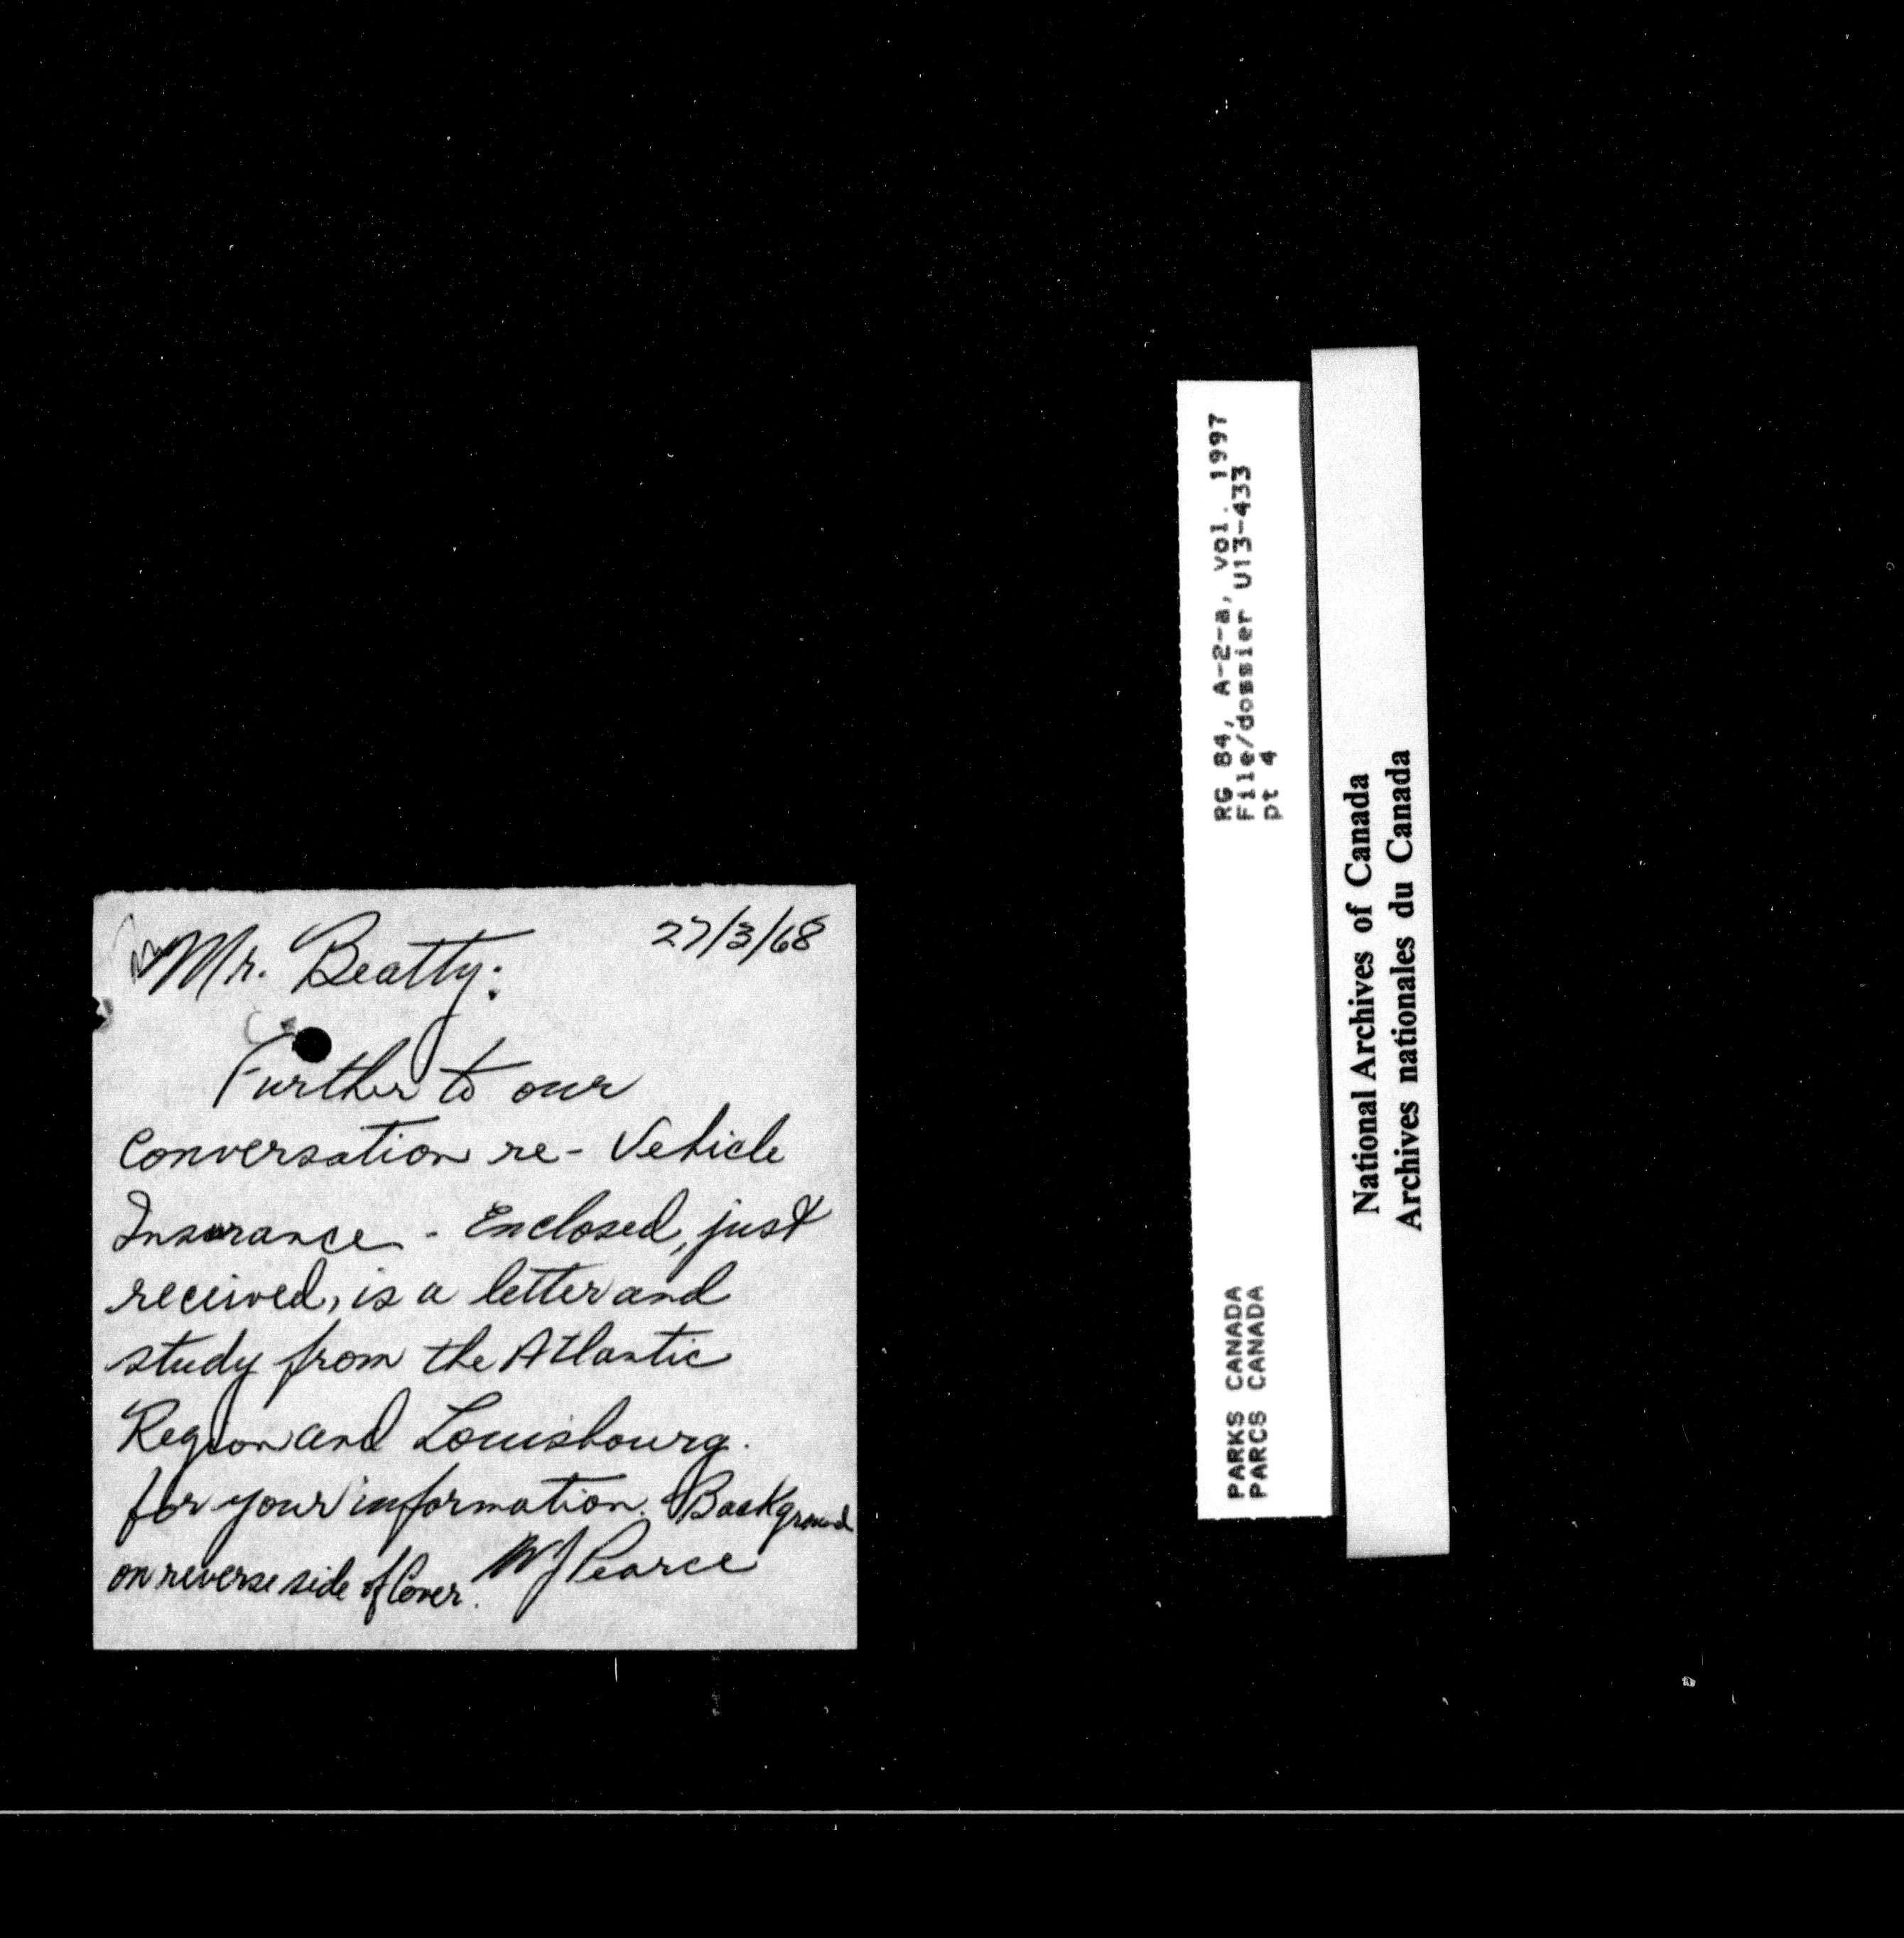 27/3/68
Mr. Beatty:
Further to our
Conversation re- Vehicle
Insurance - Enclosed, just
received, is a letter and
study from the Atlantic
Region and Louisbourg.
for your information. Background
on reverse side of Cover. WJ Pearce
RG 84, A-2-a, vol. 1997
File/dossier U13-433
pt 4
PARKS CANADA
PARCS CANADA
National Archives of Canada
Archives nationales du Canada